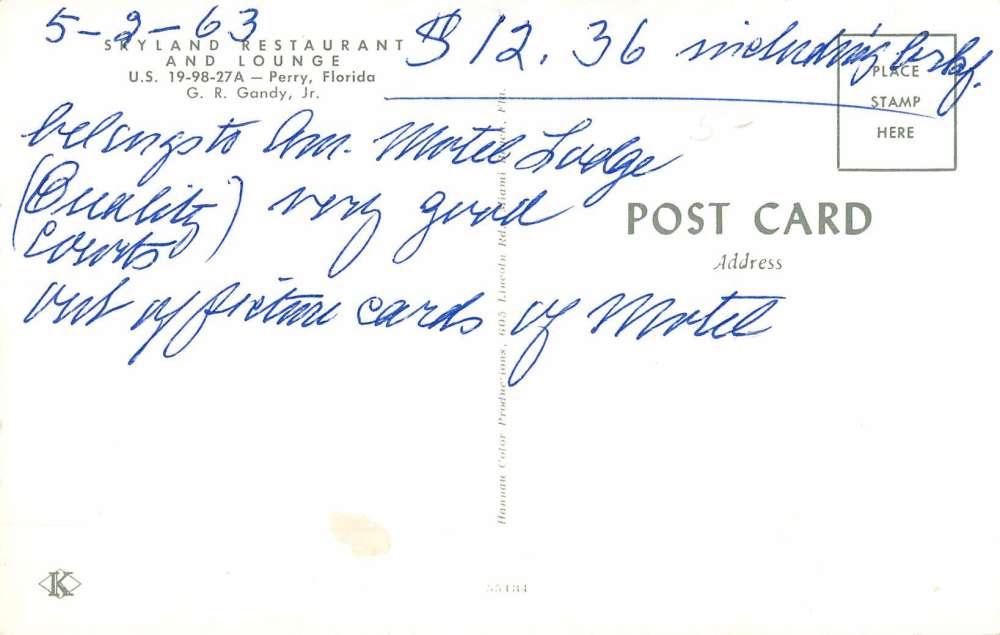 5-2-63 $12.36 including brkf.
SKYLAND RESTAURANT
AND LOUNGE
U.S. 19-98-27A — Perry, Florida
G. R. Gandy, Jr.
PLACE
STAMP
HERE
belongs to Am. Motel Lodge
(Quality Courts) very good
out of picture cards of Motel
POST CARD
Address
Hannau Color Productions, 605 Lincoln Rd., Miami Beach, Fla.
5-
K
55484